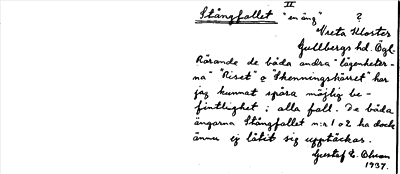 II
Stångfallet "en äng" ?
Vreta Kloster
Gullbergs hd. Ögl.
Rörande de båda andra "lägenheter-
na" "Riset" o "Skenningskärret" har
jag kunnat spåra möjlig be-
fintlighet i alla fall. De båda
ängarna Stångfallet n:r 1 o 2 ha dock
ännu ej låtit sig upptäckas.
Gustaf E. Bluum
1937.